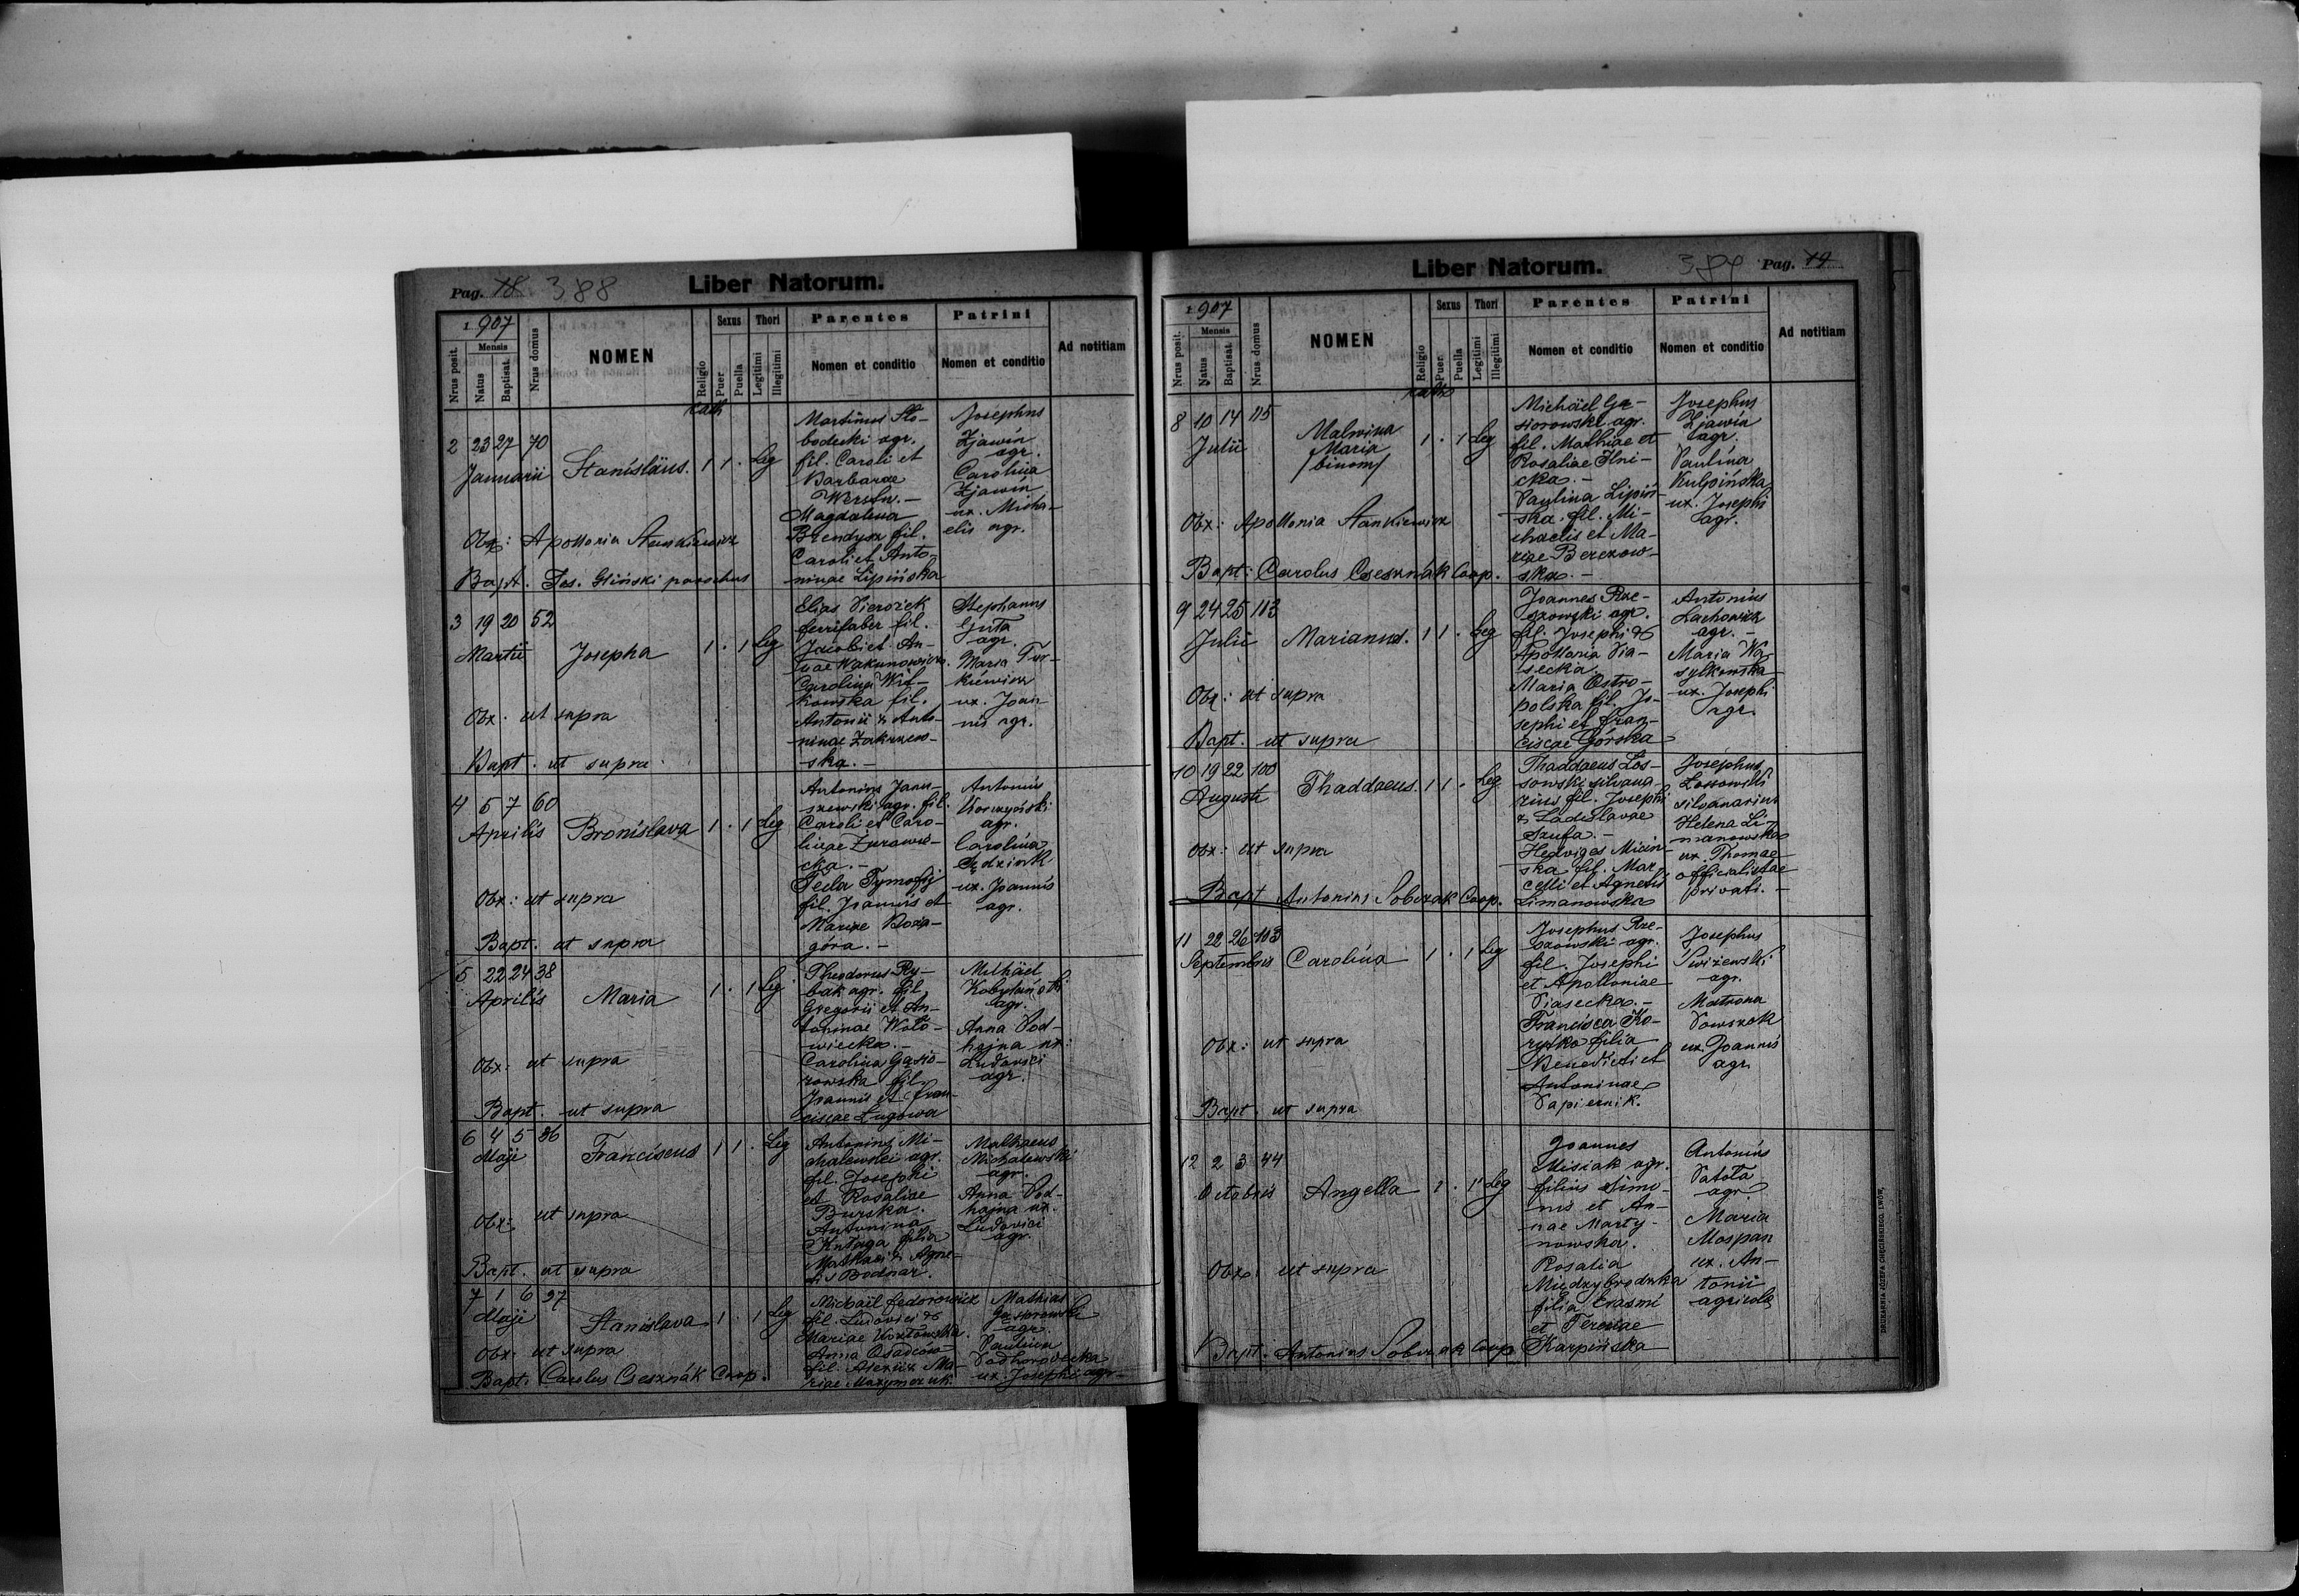 Pag. 18 388 Liber Natorum.
1907
Nrus posit.
Mensis
Natus
Baptisat.
Nrus domus
NOMEN
Religio
Sexus
Puer
Puella
Thori
Legitimi
Illegitimi
Parentes
Nomen et conditio
Patrini
Nomen et conditio
Ad notitiam
cath
2 23 27 70
Januarii Stanislaus. 1 1 . Leg
Martinus Sło-
bodecki agr.
fil. Caroli et
Barbarae
Magdalena
Brendysz fil.
Caroli et Anto-
ninae Lipińska
Josephus
Zjawin
agr.
Carolina
Zjawin
ux. Micha-
elis agr.
Obx: Apollonia Stankiewicz
Bapt. Jos. Gliński parochus
3 19 20 52
Martii Josepha 1 . 1 Leg
Elias Pierożek
ferrifaber fil.
Jacobi et An-
nae Wakunowicz.
Carolina Wit-
kowska fil.
Antonii & Anto-
ninae Zakrzew-
ska. -
Stephanus
Guta
agr.
Maria Tur-
kiewicz
ux. Joan-
nis agr.
Obx: ut supra
Bapt. ut supra
4 5 7 60
Aprilis Bronislava 1 . 1 Leg
Antonius Janu-
szewski agr. fil.
Caroli et Caro-
linae Żurawic-
cka. -
Tecla Tymofij
fil. Joannis et
Mariae Boża-
góra. -
Antonius
Korczyński
agr.
Carolina
Sędzink
ux. Joannis
agr.
Obx: ut supra
Bapt. ut supra
5 22 24 38
Aprilis Maria 1 . 1 Leg
Theodorus Ry-
bak agr. fil.
Gregorii et An-
toninae Woło-
wiecka. -
Carolina Gąsio-
rowska fil.
Joannis et Fran-
ciscae Ługowa
Michäel
Kobylański
agr.
Anna Pod-
hajna ux.
Ludovici
agr.
Obx: ut supra
Bapt. ut supra
6 4 5 86
Maji Franciscus 1 1 . Leg
Antonius Mi-
chalewski agr.
fil. Josephi
et Rosaliae
Burska.
Antonina
Kułaga filia
Mathaei & Agne-
tis Bodnar.
Mathaeus
Michalewski
agr.
Anna Pod-
hajna ux.
Ludovici
agr.
Obx: ut supra
Bapt. ut supra
7 1 6 97
Maji Stanislava 1 . 1 Leg
Michaël Fedorowicz
fil. Ludovici &
Mariae Kozłowska.
Anna Osadców
fil. Alexii & Ma-
riae Maxymczuk.
Mathias
Gąsiorowski
agr.
Paulina
Podhorodecka
ux. Josephi agr.
Obx: ut supra
Bapt. Carolus Csesznák Coop.
Liber Natorum. 389 Pag. 19
1907
Nrus posit.
Mensis
Natus
Baptisat.
Nrus domus
NOMEN
Religio
Sexus
Puer
Puella
Thori
Legitimi
Illegitimi
Parentes
Nomen et conditio
Patrini
Nomen et conditio
Ad notitiam
cath
8 10 14 115
Julii
Malwina
Maria
/binom/
1 . 1 Leg
Michäel Gą-
siorowski agr.
fil. Mathiae et
Rosaliae Ilni-
cka. -
Paulina Lipiń-
ska. fil. Mi-
chaelis et Ma-
riae Berezow-
ska. -
Josephus
Zjawin
agr.
Paulina
Kulpińska
ux. Josephi
agr.
Obx: Apollonia Stankiewicz
Bapt: Carolus Csesznák Coop.
9 24 25 113
Julii Marianus. 1 1 . Leg
Joannes Rze-
szowski agr.
fil. Josephi &
Apollonia Pia-
secka
Maria Ostro-
polska fil. Jo-
sephi et Fran-
ciscae Górska
Antonius
Lachowicz
agr. -
Maria Wa-
sylkowska
ux. Josephi
agr.
Obx: ut supra
Bapt. ut supra
10 19 22 100
Augusti Thaddaeus. 1 1 . Leg
Thaddaeus Los-
sowski silvana-
rius fil. Josephi
& Ladislavae
Szufa. -
Hedviges Micin-
ska fil. Mar-
celli et Agnetis
Limanowska
Josephus
Lossowski
silvanarius
Helena Li-
manowska
ux. Thomae
officialistae
privati. -
Obx: ut supra
Bapt Antonius Sobczak Coop.
11 22 26 103
Septembris Carolina 1 . 1 Leg
Josephus Rze-
szowski agr.
fil. Josephi
et Apolloniae
Piasecka. -
Francisca Ko-
rytko filia
Benedicti et
Antoninae
Papiernik.
Josephus
Świżewski
agr.
Matrona
Powszok
ux. Joannis
agr.
Obx: ut supra
Bapt. ut supra
12 2 3 44
Octobris Angella 1 . 1 Leg
Joannes
Misiak agr.
filius Simo-
nis et An-
nae Marty-
nowska.
Rosalia
Międzybrodzka
filia Erasmi
et Teresiae
Karpińska
Antonius
Patoła
agr.
Maria
Mospan
ux. An-
tonii
agricola
Obx: ut supra
Bapt. Antonius Sobczak Coop.
DRUKARNIA JÓZEFA CHĘCIŃSKIEGO, LWÓW,